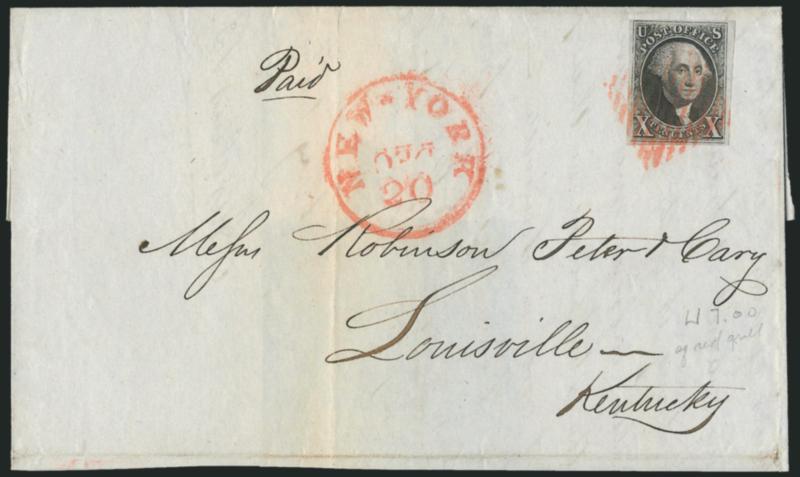 Paid
U S
POST OFFICE
X TEN CENTS X
NEW-YORK
20
Messrs Robinson Peter & Cary
Louisville
Kentucky
7.00